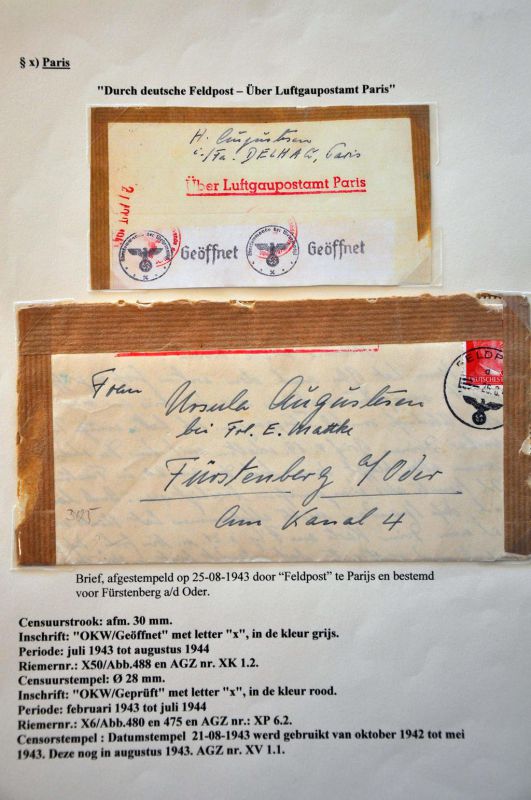 § x) Paris
"Durch deutsche Feldpost – Über Luftgaupostamt Paris"
H. Augustesen
Fa. DELHAG, Paris
Über Luftgaupostamt Paris
Geöffnet Geöffnet
FELDPOST
Frau
Ursula Augustesen
bei Frl. E. Mattke
Fürstenberg a/Oder
Am Kanal 4
345
Brief, afgestempeld op 25-08-1943 door “Feldpost” te Parijs en bestemd
voor Fürstenberg a/d Oder.
Censuurstrook: afm. 30 mm.
Inschrift: "OKW/Geöffnet" met letter "x", in de kleur grijs.
Periode: juli 1943 tot augustus 1944
Riemernr.: X50/Abb.488 en AGZ nr. XK 1.2.
Censuurstempel: Ø 28 mm.
Inschrift: "OKW/Geprüft" met letter "x", in de kleur rood.
Periode: februari 1943 tot juli 1944
Riemernr.: X6/Abb.480 en 475 en AGZ nr.: XP 6.2.
Censorstempel : Datumstempel 21-08-1943 werd gebruikt van oktober 1942 tot mei
1943. Deze nog in augustus 1943. AGZ nr. XV 1.1.